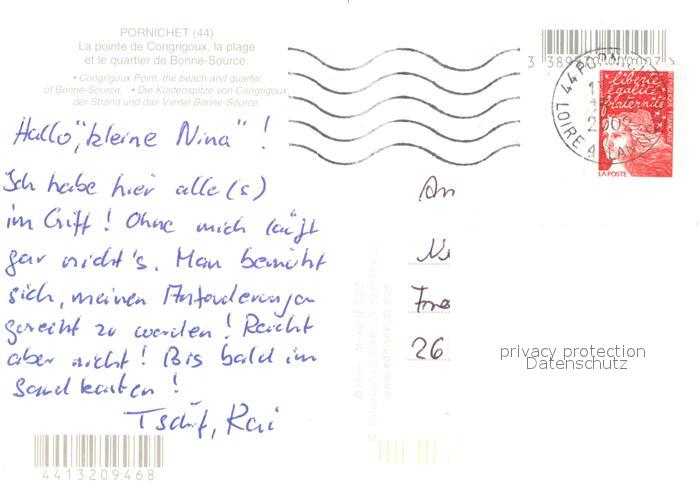 PORNICHET (44)
La pointe de Congrigoux, la plage
et le quartier de Bonne-Source.
• Congrigoux Point, the beach and quarter
of Bonne-Source. • Die Küstenspitze von Congrigoux,
der Strand und das Viertel Bonne-Source.
Hallo „kleine Nina“ !
Ich habe hier alle(s)
im Griff ! Ohne mich läuft
gar nicht's. Man bemüht
sich, meinen Anforderungen
gerecht zu werden ! Reicht
aber nicht ! Bis bald im
Sandkasten !
Tschüß, Kai
4413209468
44 PORNICHET
LOIRE ATLANTIQUE
liberté
égalité
fraternité
LA POSTE
An
26
www.editionsjos.com
privacy protection
Datenschutz